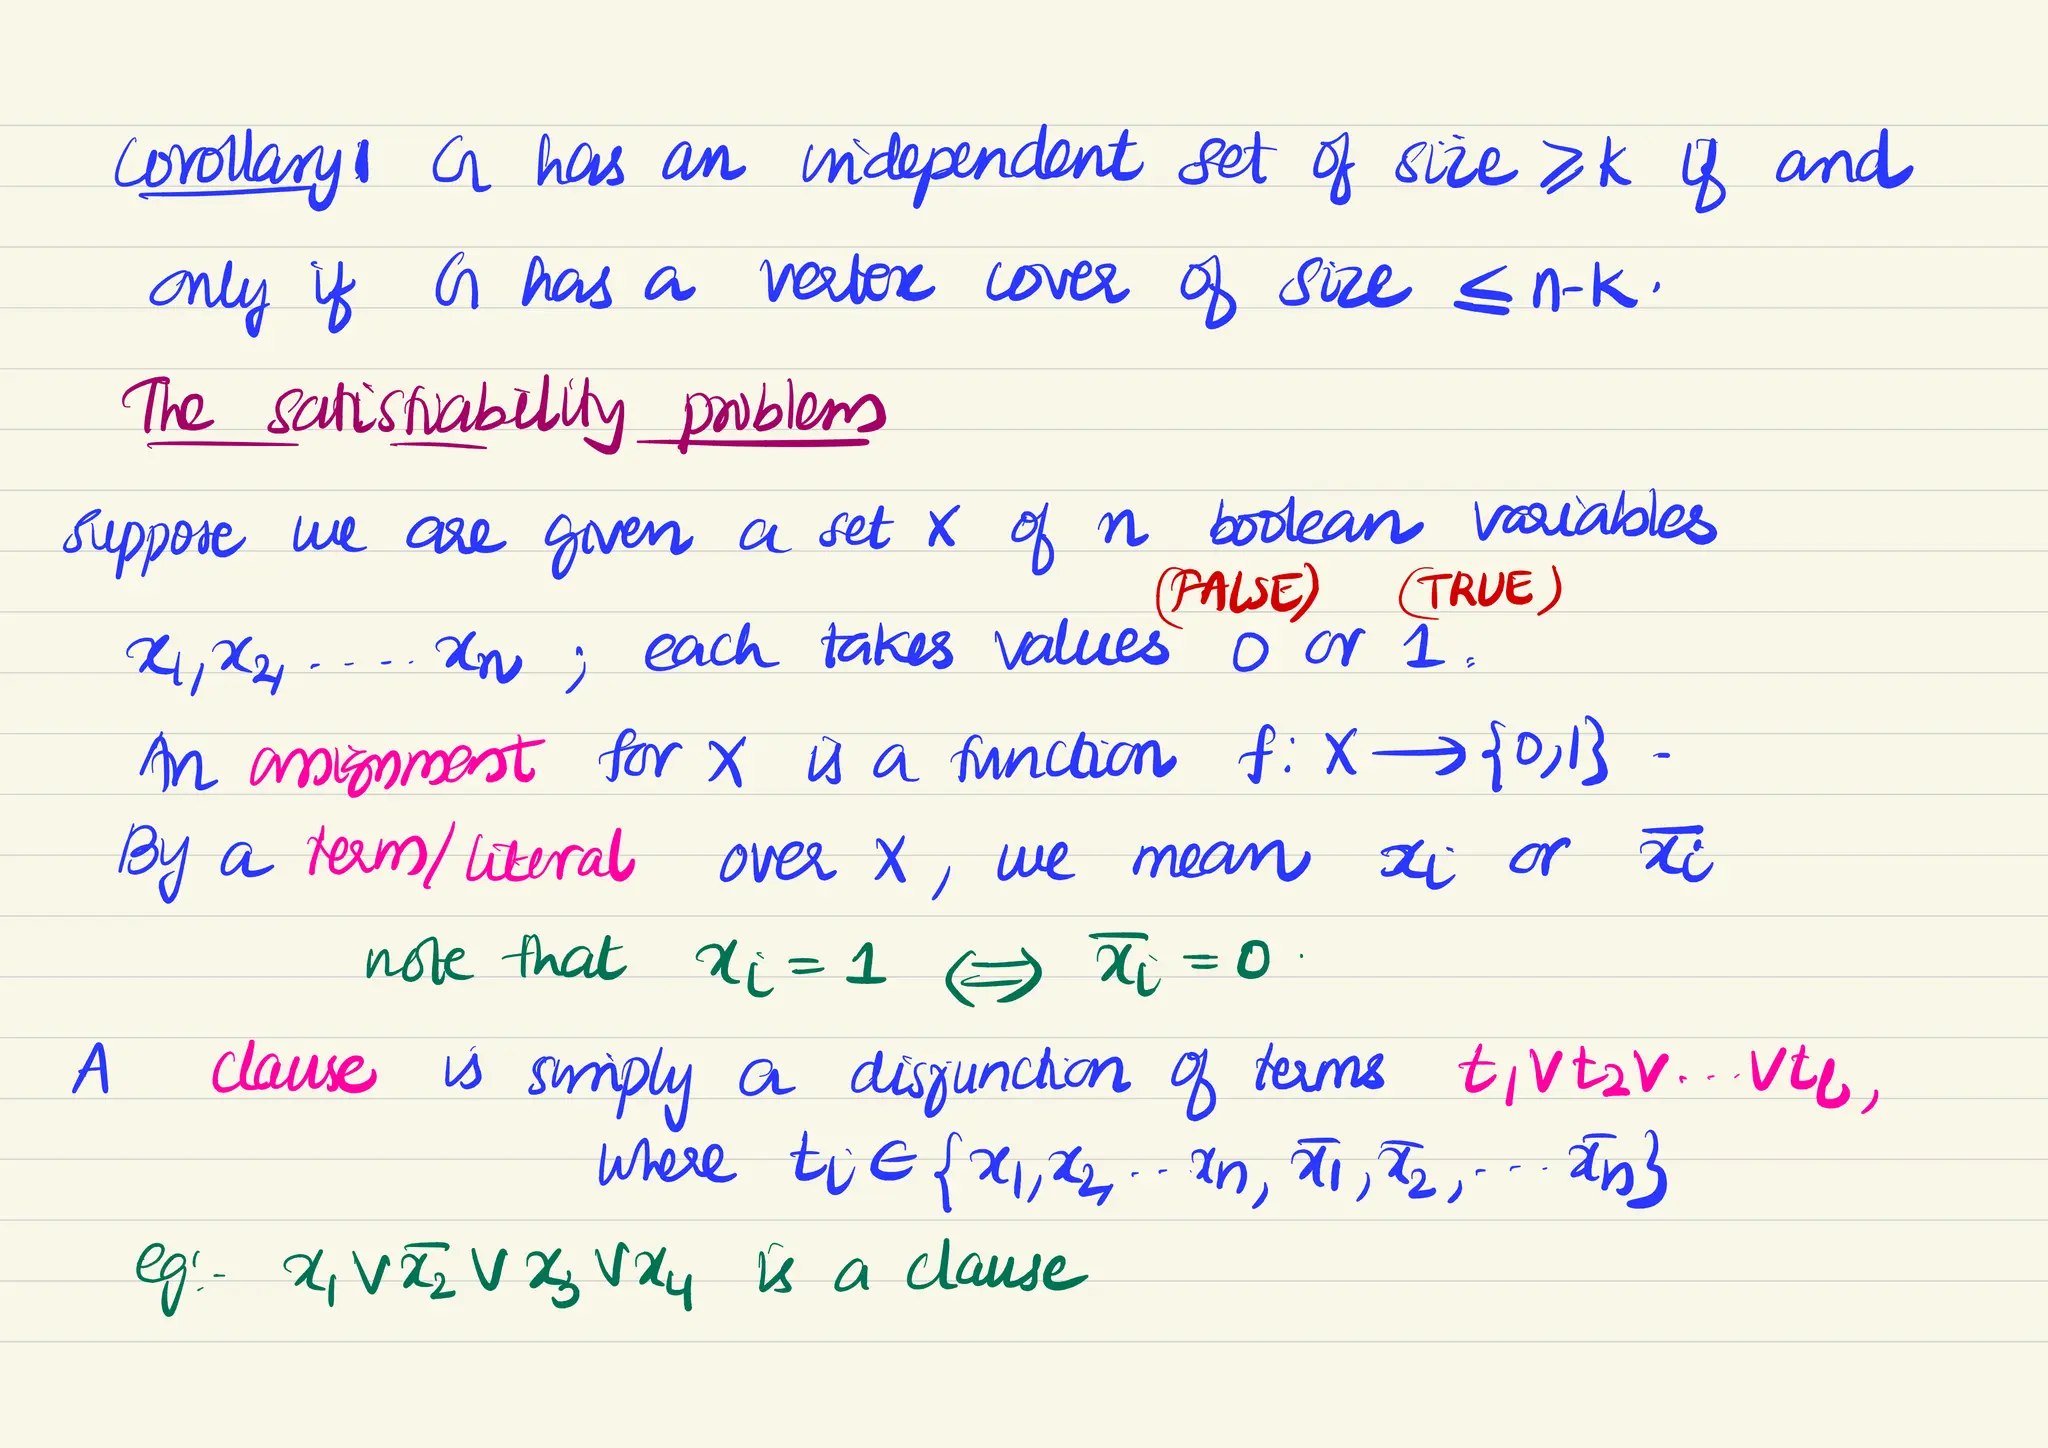 Corollary 1 G has an independent set of size ⩾ k if and
only if G has a vertex cover of size ≤ n-k.
The satisfiability problem
suppose we are given a set X of n boolean variables
(FALSE) (TRUE)
x₁, x₂, ..... xₙ ; each takes values 0 or 1.
An assignment for X is a function f: X → {0,1} -
By a term/literal over X, we mean xᵢ or x̅ᵢ
note that xᵢ = 1 ⟺ x̅ᵢ = 0.
A clause is simply a disjunction of terms t₁ ∨ t₂ ∨ ... ∨ tₗ,
where tᵢ ∈ {x₁, x₂, ... xₙ, x̅₁, x̅₂, ... x̅ₙ}
eg:- x₁ ∨ x̅₂ ∨ x₃ ∨ x₄ is a clause